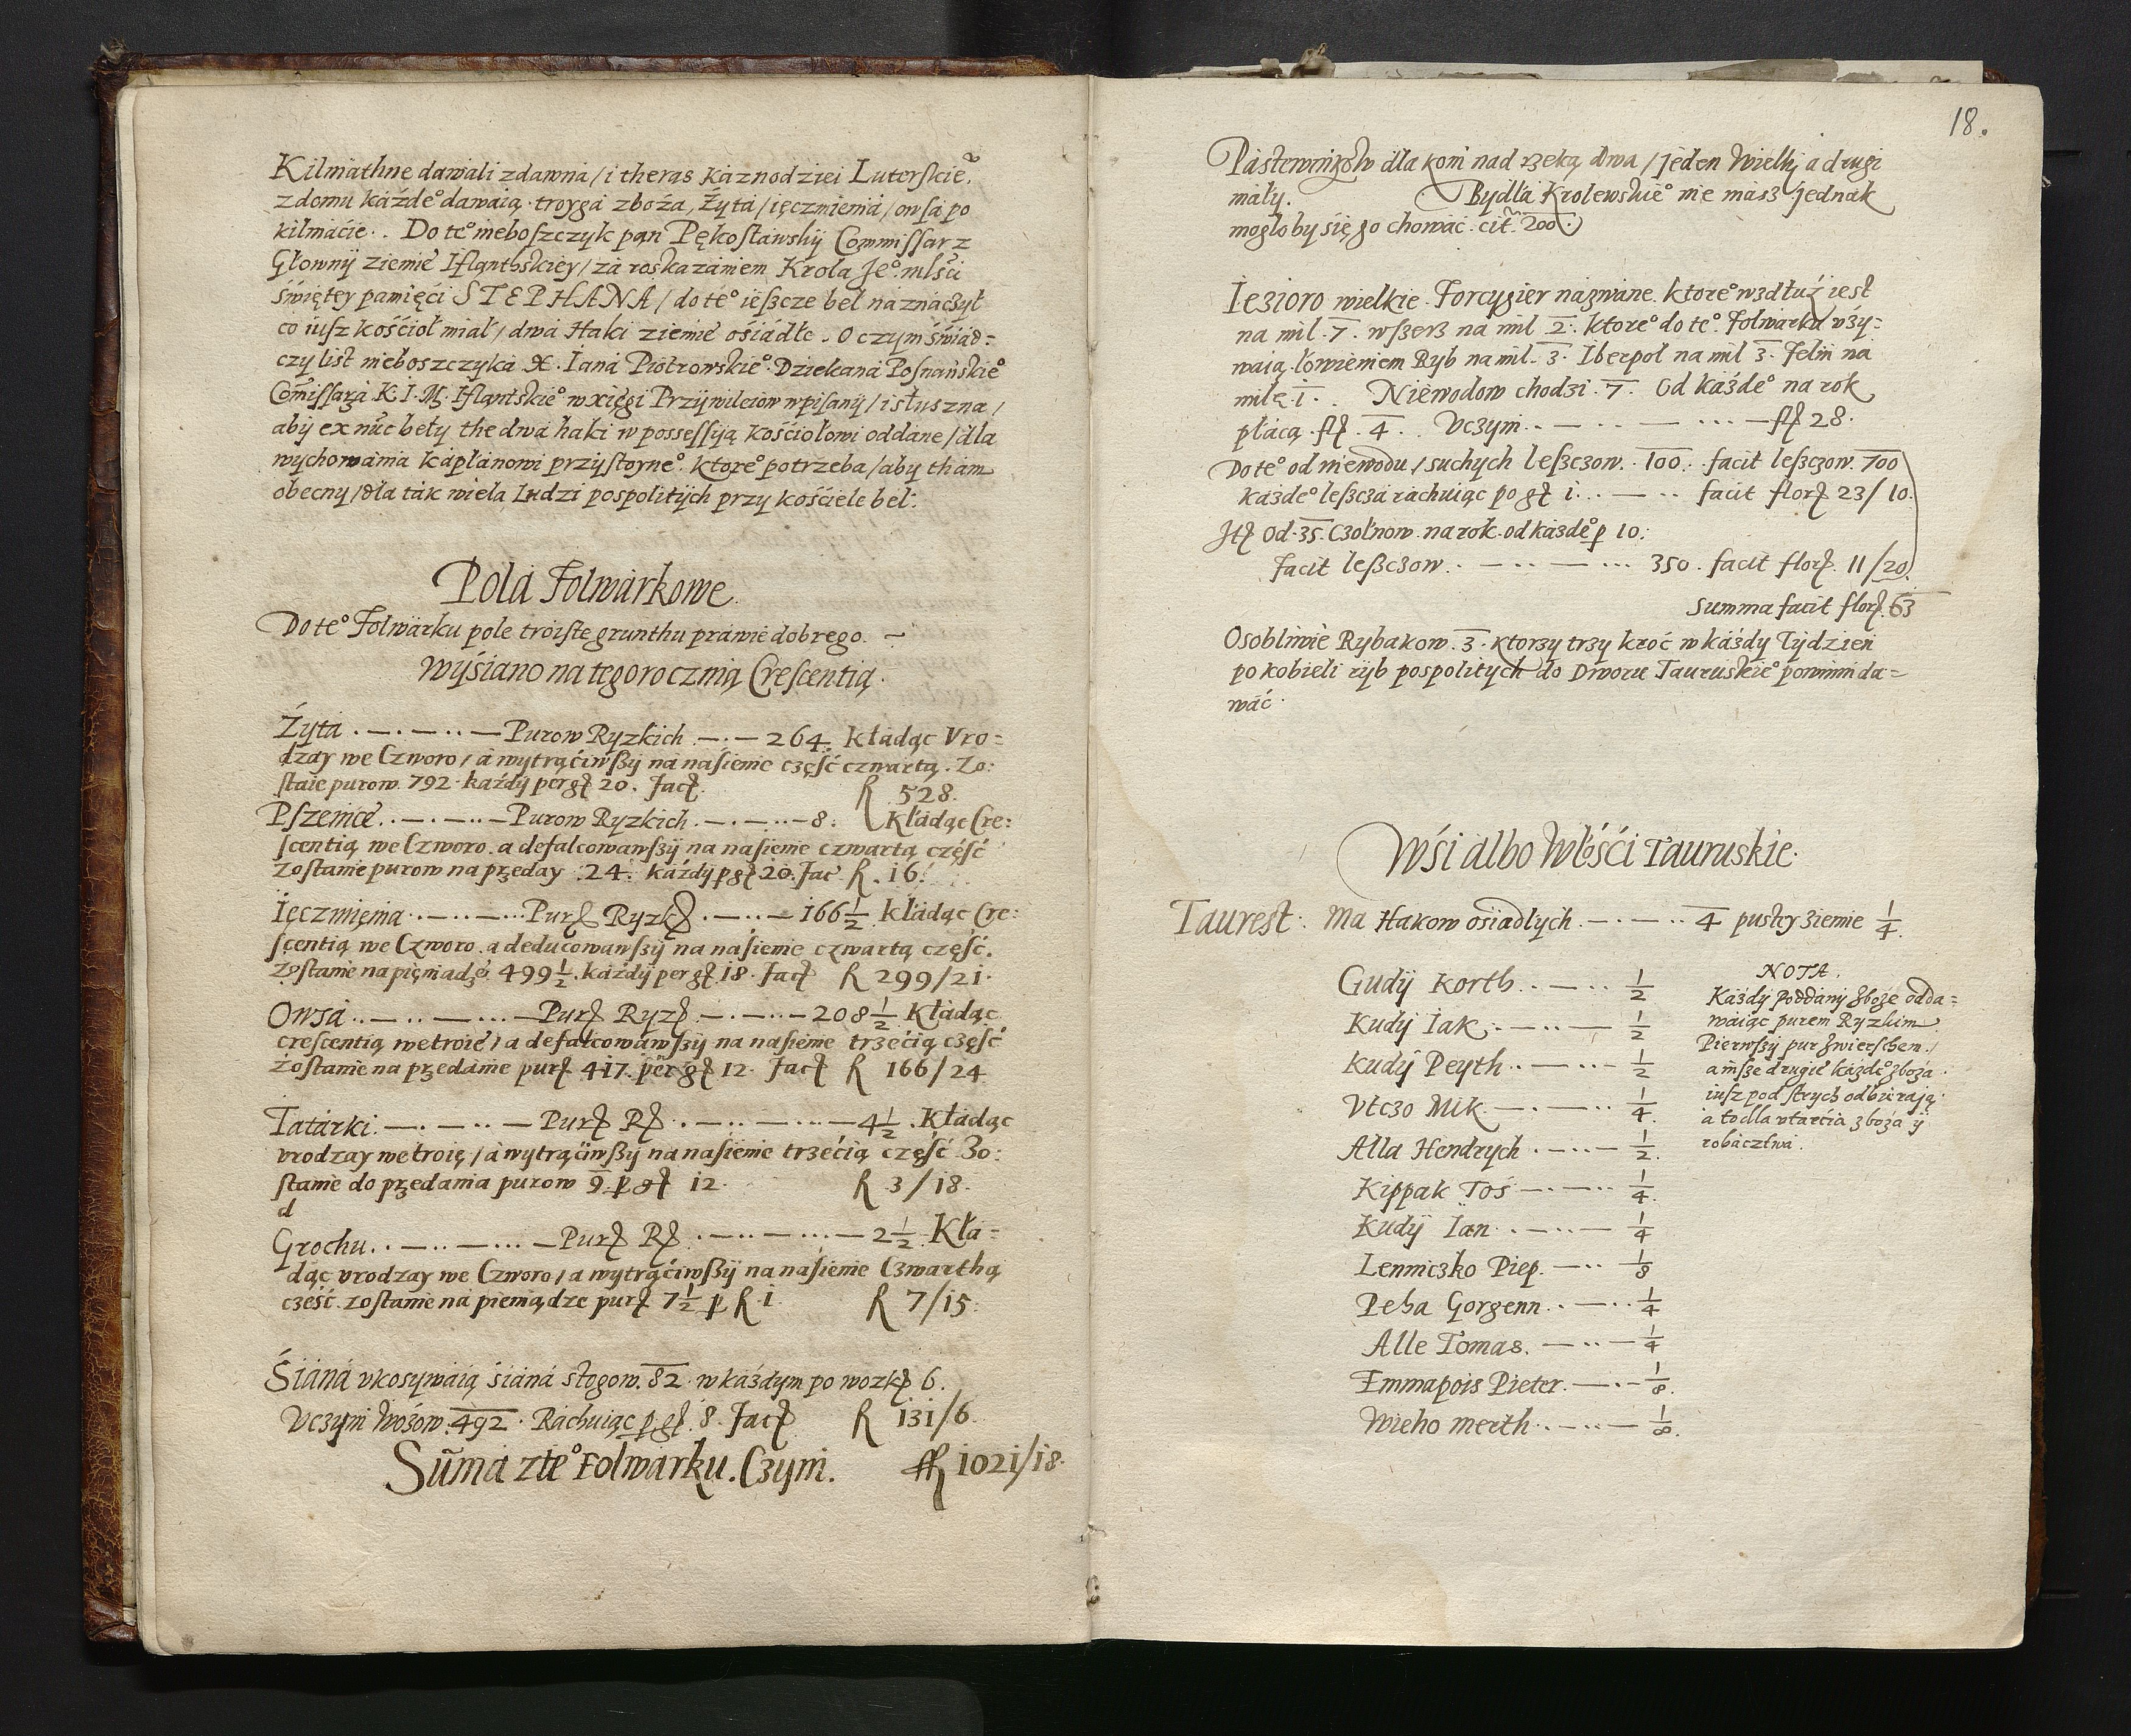 Kilmathne dawali zdawna / i theras kaznodziei Luterskieº
z domu każdeº dawaią troyga zboża, Żyta / ięczmienia / owsa po
kilmacie. Do teº nieboszczyk pan Pękosławskij Commissarz
Głownij ziemie Iflantskiey / za roskazaniem Krola Jeº mlści
świętey pamięći STEPHANA / do teº ieszcze beł naznaczył
co iusz kośćioł miał / dwa Haki ziemie ośiadłe. O czym świad=
czy list nieboszczyka X. Iana Piotrowskieº Dziekana Posnańskieº
Comissarza K.I.M. Iflantskieº w xięgi Przijwileiow wpisanij / i słuszna /
abij ex nuc beły the dwa haki w possessiją kośćiołowi oddane / dla
wychowania kapłanowi przystoyneº ktoreº potrzeba / aby tham
obecny / dla tak wielą Ludzi pospolitÿch przy kośćiele beł:
Pola Folwarkowe.
Do teº Folwarku pole troiste grunthu prawie dobrego. —
Wyśiano na tegorocznią Crescentią.
Żyta . — . — .. — Purow Ryzkich — . — 264. Kładąc Vro=
dzay we Czworo / a wytrąćiwszÿ na naśienie część czwartą. Zo:
staie purow 792 każdy per gł 20. Facł. fl 528.
Pszenice . . — . — .. — Purow Ryzkich . — . — .. — 8: Kładąc Cre:
scentią we Czworo. a defalcowawszÿ na naśienie czwartą część
zostanie purow na przeday .24. każdÿ p gł 20. Fac fl. 16.
Ięczmięnia .. — .. — ... Purł Ryzkł . — .. — 166 1/2 kładąc Cre:
scentią we Czworo. a deducowawszÿ na naśienie czwartą część.
zostanie na pięniądze 499 1/2. każdÿ per gł 18. Facł fl 299/21.
Owsa .. — .. — ... — Purł Ryzł — . — .. — 208 1/2 Kładąc
crescentią wetroie / a defalcowawszÿ na naśienie trzećią część
zostanie na przedanie purł 417. per gł 12. Facł fl 166/24
Tatarki. — . — .. — Purł Rł . — .. — ... — 4 1/2. Kładąc
vrodzay wetroię / a wytrąćiwszÿ na naśienie trzećią część Zo:
stanie do przedania purow 9. p gł 12. fl 3/18.
d
Grochu. . — .. — ... — Purł Rł . — .. — ... — 2 1/2. Kła=
dąc vrodzay we Czworo / a wytrąćiwszÿ na naśienie Czwarthą
cześć. zostanie na pieniądze purł 7 1/2 p fl 1. fl 7/15.
Śiana vkosywaią śiana stogow. 82. w każdym po wozkł 6.
Vczyni Wozow. 492. Rachuiąc p gł. 8. Facł fl 131/6.
Suma z teº Folwarku. Czyni. fl 1021/18.
18.
Pastewnikow dla koni nad rzeką dwa / jeden Wielkj a drugi
mały. Bydła Krolewskieº nie masz jednak
mogło by się go chować. cit 200.
Iezioro wielkie Forcygier nazwane. ktoreº wzdłuż iest
na mil. 7. wszerz na mil 2. ktoreº do teº Folwarku vży=
waią łowieniem Ryb na mil. 3. Iberpol na mil 3. Felin na
milę 1. Niewodow chodzi. 7. Od każdeº na rok
płacą fl. 4. Vczyni.. — .. — ... — fl 28.
Do teº od niewodu / suchych leszczow. 100. facit leszczow. 700
każdeº leszcza rachuiąc po gł 1... — .. facit florł 23/10.
Itł Od 35. Czołnow. na rok. od każdeº p 10:
Facit leszczow. . — .. — ... 350. facit florł. 11/20.
Summa facit florł. 63
Osobliwie Rybakow. 3. ktorzy trzy kroć w każdy Tydzień
po kobieli ryb pospolitych do Dworu Tauruskieº powinni da=
wać.
Wśi albo Włośći Tauruskie.
Taurest: Ma Hakow ośiadłych. — . — .. 4 pustey ziemie 1/4.
Gudÿ Kortb. . — .. 1/2
Kudÿ Iak. . — .. — 1/2
Kudÿ Peyth .. — .. 1/2
Vtczo Mik — . — .. 1/4.
Alla Hendrych . — .. — 1/2.
Kippak Toś — . — .. 1/4.
Kudÿ Ian . — .. — 1/4
Lenniczko Piep. — .. 1/8
Peba Gorgenn. . — .. 1/4
Alle Tomas. — .. — 1/4
Emmapois Pieter. — . — 1/8.
Wieho merth . — .. — 1/8.
NOTA.
Każdÿ poddanÿ zboże odda=
waiąc purem Ryzkim
Pierwszÿ pur z wierschem /
a insze drugie każdeº zboża
iusz pod strych odbieraią
a to dla vtarćia zboża ÿ
robacztwa.